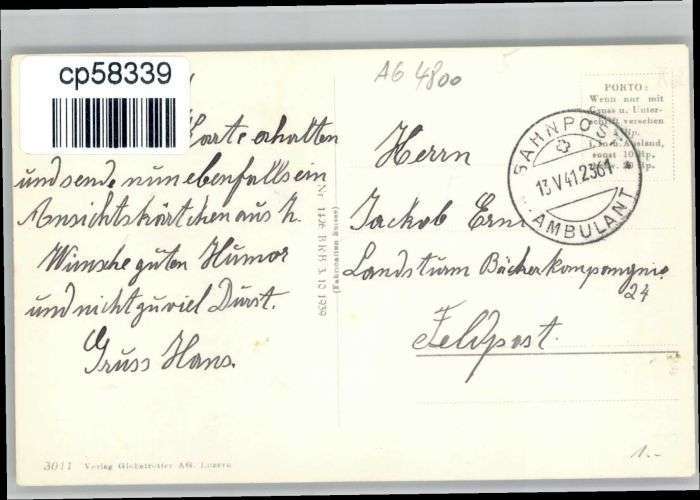 cp58339
AG 4800
Karte erhalten
und sende nun ebenfalls ein
Ansichtskärtchen aus Z.
Wünsche guten Humor
und nicht zu viel Durst.
Gruss Hans.
Nr. 1426 BRB 3. 10. 1939
PORTO:
Wenn nur mit
Gruss u. Unter-
schrift versehen
Rp.
Ausland,
sonst 10 Rp.
BAHNPOST
13 V 41.2361
AMBULANT
Herrn
Jackob Erni
Landsturm Bäckerkompangnie
24
Feldpost.
3011 Verlag Globetrotter AG. Luzern
1.-